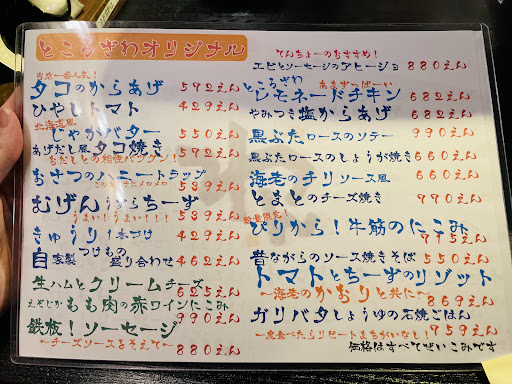 ところざわオリジナル
当店一番人気！
タコのからあげ 572えん
ひやしトマト 429えん
北海道風
じゃがバター 550えん
あげだし風タコ焼き 572えん
おだしとの相性バツグン！
おさつのハニートラップ
このあませにメロメロ 539えん
むげんうまらちーず
うまい！うまい！！！ 539えん
きゅうり1本づけ 429えん
自家製つけもの盛り合わせ 462えん
生ハムとクリームチーズ 655えん
えぞじかもも肉の赤ワインにこみ 990えん
鉄板！ソーセージ
〜チーズソースをそえて〜 880えん
てんちょーのおすすめ！
エビとソーセージのアヒージョ 880えん
ところざわ あまずっぱーい
レモネードチキン 682えん
やみつき塩からあげ 682えん
黒ぶたロースのソテー 990えん
黒ぶたロースのしょうが焼き 660えん
海老のチリソース風 660えん
とまとのチーズ焼き 770えん
数量限定！
ぴりから！牛筋のにこみ 715えん
昔ながらのソース焼きそば 550えん
トマトとちーずのリゾット
〜海老のかおりと共に〜 869えん
ガリバタしょうゆの石焼ごはん
一度食べたらリピートまちがいなし！ 759えん
価格はすべてぜいこみです